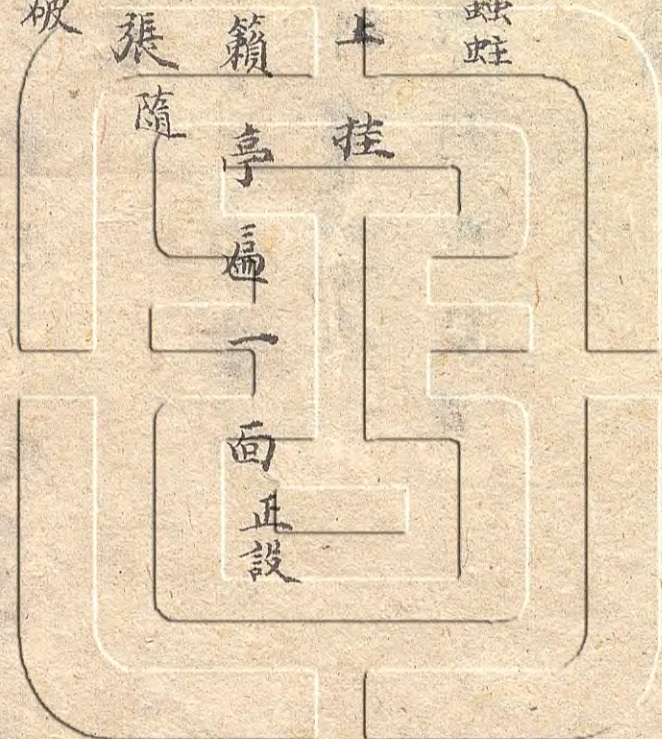 蟲蛀
上挂
籟亭匾一面正設
張隨
破